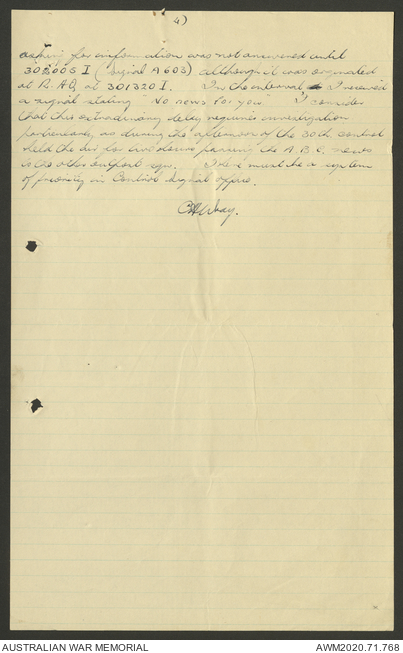 4)
asking for information was not answered until
302005 I (signal A603) although it was originated
at B. HQ at 301320 I. In the interval I received
a signal stating "No news for you". I consider
that this extraordinary delay requires investigation
particularly as during the afternoon of the 30th control
held the air for two hours passing the A.B.C. news
to the other outpost sigs. There must be a system
of priority in Control signal office.
AUSTRALIAN WAR MEMORIAL
AWM2020.71.768